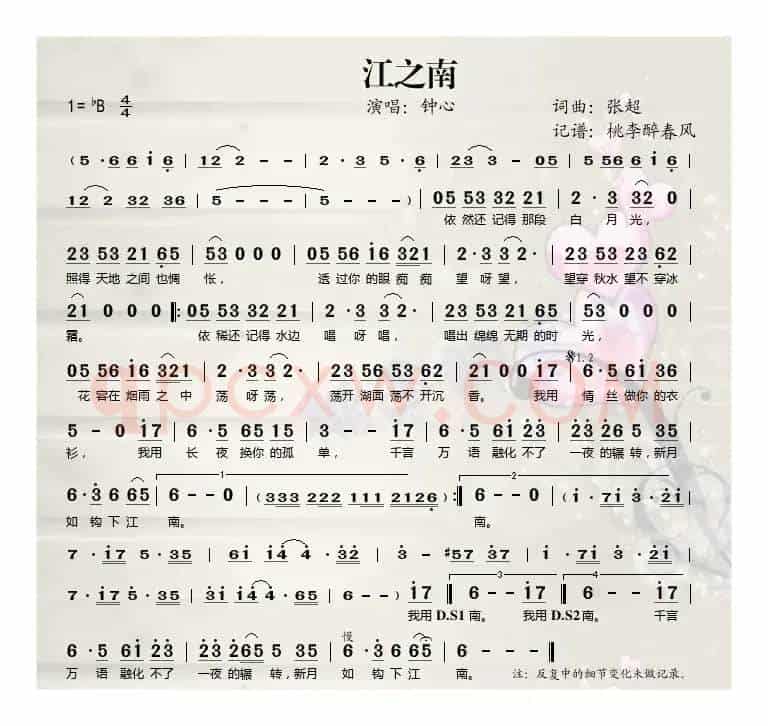 江之南
1=♭B 4/4 演唱：钟心 词曲：张超
记谱：桃李醉春风
(5·66i6 | 122-- | 2·335·6 | 233-05 | 5566i·6 |
122 32 36 | 5--- | 5---) | 05 53 32 21 | 2·3 32 0 |
依然还记得那段 白月光，
23 53 21 65 | 53 0 0 0 | 05 56 i6 321 | 2·3 32- | 23 53 23 62 |
照得天地之间也惆 怅， 透过你的眼痴痴 望呀望， 望穿秋水望不穿冰
21 0 0 0 ‖: 05 53 32 21 | 2·3 32- | 23 53 21 65 | 53 0 0 0 |
霜。 依稀还记得水边 唱呀唱， 唱出绵绵无期的时 光，
1.2
05 56 i6 321 | 2·3 32- | 23 56 53 62 | 21 0 0 i7 | 6·5 6i 36 |
花容在烟雨之中 荡呀荡， 荡开湖面荡不开沉 香。 我用 情丝做你的衣
5-0 i7 | 6·5 65 15 | 3-0 i7 | 6·5 6i 23 | 23 26 55 35 |
衫， 我用 长夜换你的孤 单， 千言 万语融化不了 一夜的辗转，新月
1 2
6·3 6 65 | 6--0 | (333 222 111 2126) :‖ 6--0 | (i·7i 3·2i |
如钩下江 南。 南。
7·i7 5·35 | 6i i4 4·32 | 3--#57 37 | i·7i 3·2i |
3 4
7·i7 5·35 | 6i i4 4·65 | 6--) i7 ‖ 6--i7 ‖ 6--i7 |
我用D.S1南。 我用D.S2南。 千言
慢
6·5 6i 23 | 23 265 5 35 | 6·3 6 65 | 6--- ‖
万语融化不了 一夜的辗转，新月 如钩下江 南。 注：反复中的细节变化未做记录。
qpcxw.com